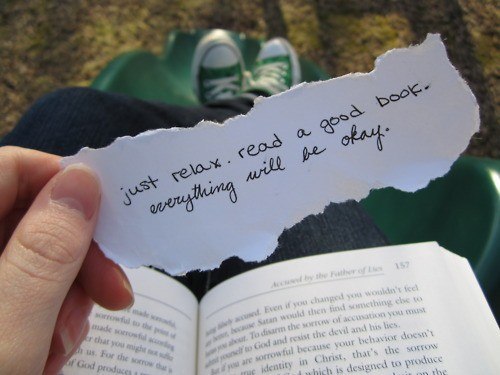 just relax. read a good book.
everything will be okay.
Accused by the Father of Lies 157
being falsely accused. Even if you changed you wouldn't feel
any better, because Satan would then find something else to
accuse you about. To disarm the sorrow of accusation you must
submit yourself to God and resist the devil and his lies.
But if you are sorrowful because your behavior doesn't
true identity in Christ, that's the sorrow
God which is designed to produce
made sorrowful,
sorrowful to the point of
made sorrowful according
that you might not suffer
us. For the sorrow that is
of God produces a